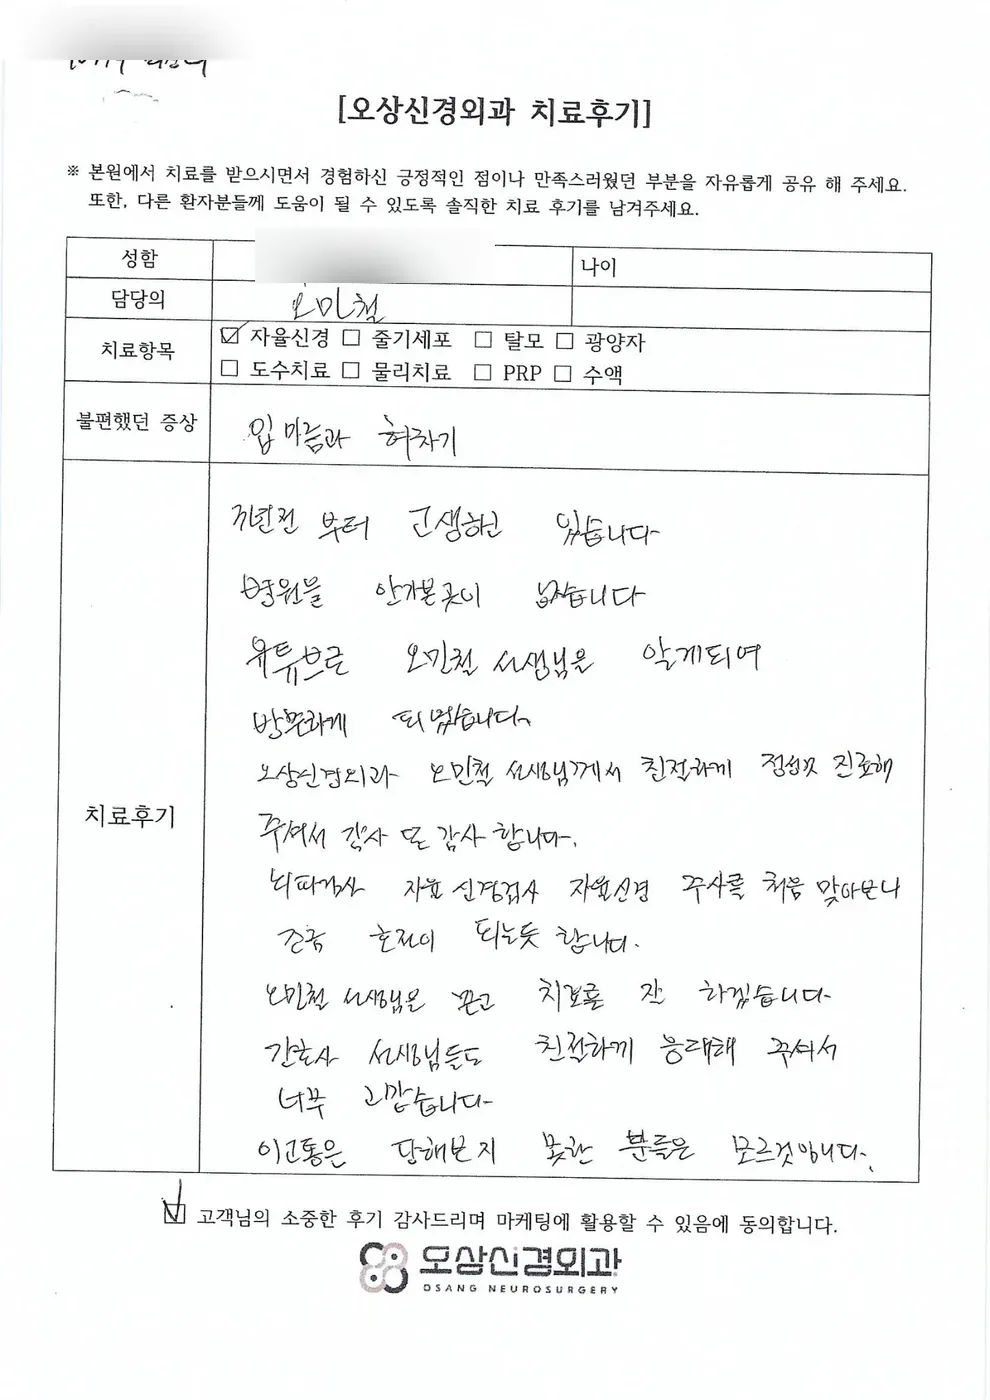 [오상신경외과 치료후기]
※ 본원에서 치료를 받으시면서 경험하신 긍정적인 점이나 만족스러웠던 부분을 자유롭게 공유 해 주세요.
또한, 다른 환자분들께 도움이 될 수 있도록 솔직한 치료 후기를 남겨주세요.
성함
나이
담당의 오민철
치료항목 ☑ 자율신경 □ 줄기세포 □ 탈모 □ 광양자
□ 도수치료 □ 물리치료 □ PRP □ 수액
불편했던 증상 입마름과 혀자기
치료후기
년전 부터 고생하고 있습니다
병원을 안가본곳이 없습니다
유튜브로 오민철 선생님을 알게되여
방문하게 되였습니다.
오상신경외과 오민철 선생님께서 친절하게 정성껏 진료해
주셔서 감사 또 감사 합니다.
뇌파검사 자율 신경검사 자율신경 주사를 처음 맞아보니
조금 호전이 되는듯 합니다.
오민철 선생님을 믿고 치료를 잘 하겠습니다
간호사 선생님들도 친절하게 응대해 주셔서
너무 고맙습니다
이고통은 당해보지 못한 분들은 모르것입니다.
☑ 고객님의 소중한 후기 감사드리며 마케팅에 활용할 수 있음에 동의합니다.
오상신경외과
OSANG NEUROSURGERY